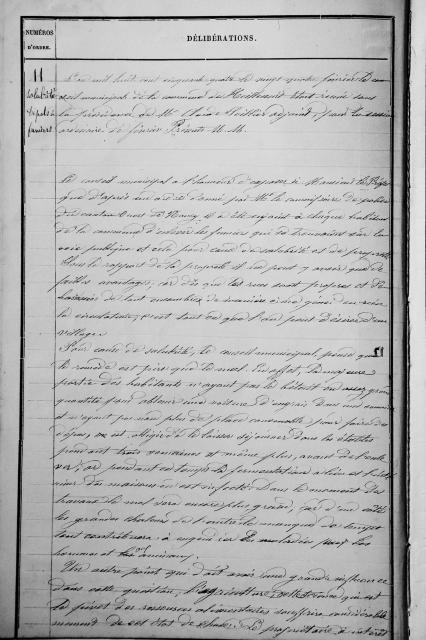 NUMÉROS D'ORDRE.
DÉLIBÉRATIONS.
11
L'an mil huit cent cinquante quatre le vingt quatre février le con
seil municipal de la commune de étant réuni sous
la présidence de Mr adjoint, pour la session
ordinaire de février Présents M.M.
Le conseil municipal a l'honneur d'exposer à Monsieur le Préfet
que d'après un ordre donné par Mr le commissaire de police
du canton de Nancy il a été enjoint à chaque habitant
de la commune d'enlever les fumiers qui se trouvaient sur la
voie publique et cela pour cause de salubrité et de propreté
Sous le rapport de la propreté il ne peut y avoir que de
faibles avantages, car dès que les rues sont propres et dé
barrassées de tout encombre de manière à ne gêner en rien
la circulation, c'est tout ce que l'on peut désirer d'un
village.
Pour cause de salubrité, le conseil municipal pense que
le remède est pire que le mal. En effet, la majeure
partie des habitants n'ayant pas de bétail en assez grande
quantité pour obtenir une voiture d'engrais dans une
et n'ayant pas non plus de place convenable pour faire des
dépôts, est obligée de le laisser séjourner dans les étables
pendant trois semaines et même plus, avant de l'enle
ver, or pendant ce temps la fermentation a lieu et
des maisons en est infecté. Dans le moment des
travaux le mal sera encore plus grand, car d'un côté
les grandes chaleurs de l'autre le manque de temps
tout contribuera à engendrer des maladies pour les
hommes et les animaux.
Un autre point qui doit avoir une grande influence
dans cette question, l'agriculture, qui est
le pivot des ressources alimentaires souffrira considérable
ment de cet état de choses. Le propriétaire a intérêt